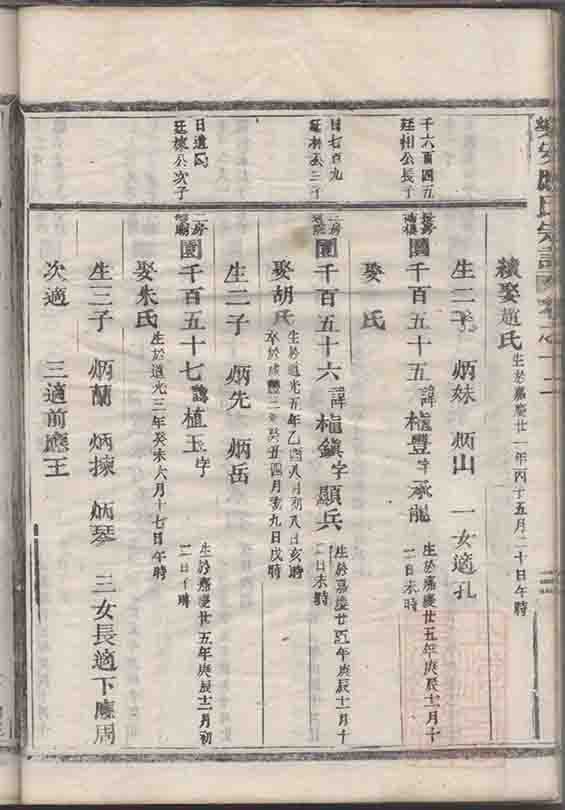 氏宗譜
續娶趙氏 生於嘉慶廿一年丙子五月二十日午時
生二子 炳妹 炳山 一女適孔
千六百四五
廷相公長子
園千百五十五 諱 豐字承龍 生於嘉慶廿五年庚辰十二月十
二日未時
娶 氏
日七百九
廷相公三子
二房
園千百五十六 諱 鎮字顯兵 生於嘉慶廿五年庚辰十二月十
二日未時
娶胡氏 生於道光五年乙酉八月初八日亥時
卒於咸豐三年癸丑四月初九日戌時
生二子 炳先 炳岳
廷 公次子
二房
園千百五十七 諱植玉字 生於嘉慶廿五年庚辰十二月初
二日 時
娶朱氏 生於道光三年癸未六月十七日午時
生三子 炳蘭 炳揀 炳琴 三女長適下應周
次適 三適前應王